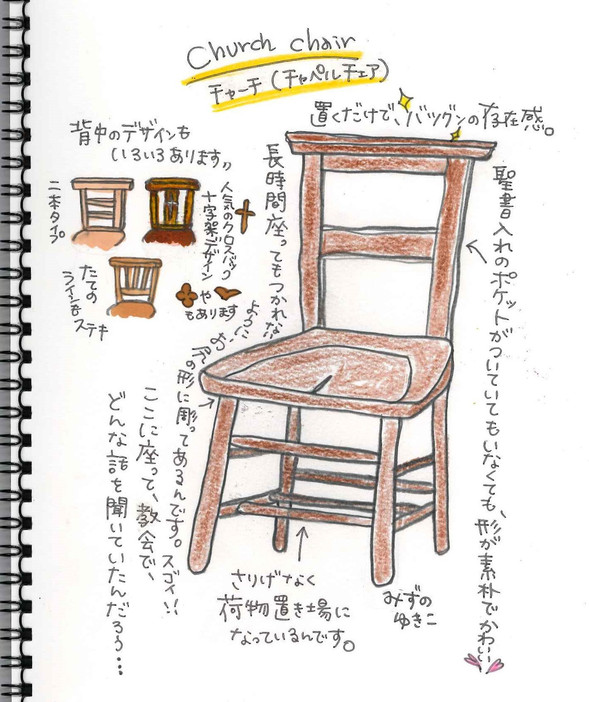 Church chair
チャーチ(チャペルチェア)
置くだけで、バツグンの存在感。
背中のデザインも
いろいろあります。
二本タイプ
人気のクロスバック
十字架デザイン
たての
ラインもステキ
や
もあります
長時間座ってもつかれないようにお尻の形に彫ってあるんです。スゴイ!!
聖書入れのポケットがついていてもいなくても、形が素朴でかわいい
ここに座って、教会で、
どんな話を聞いていたんだろう・・・
さりげなく
荷物置き場に
なっているんです。
みずの
ゆきこ